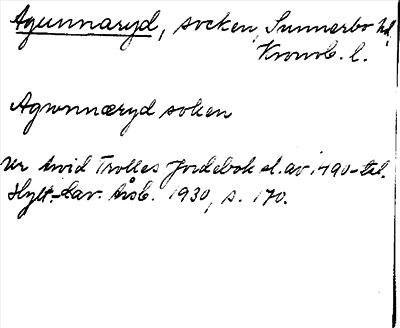 Agunnaryd, socken, Sunnerbo hd,
Kronob. l.
Agwnnæryd soken
Ur Arvid Trolles Jordebok sl. av 1490-tal.
Hylt.-Cav. Årsb. 1930, s. 170.